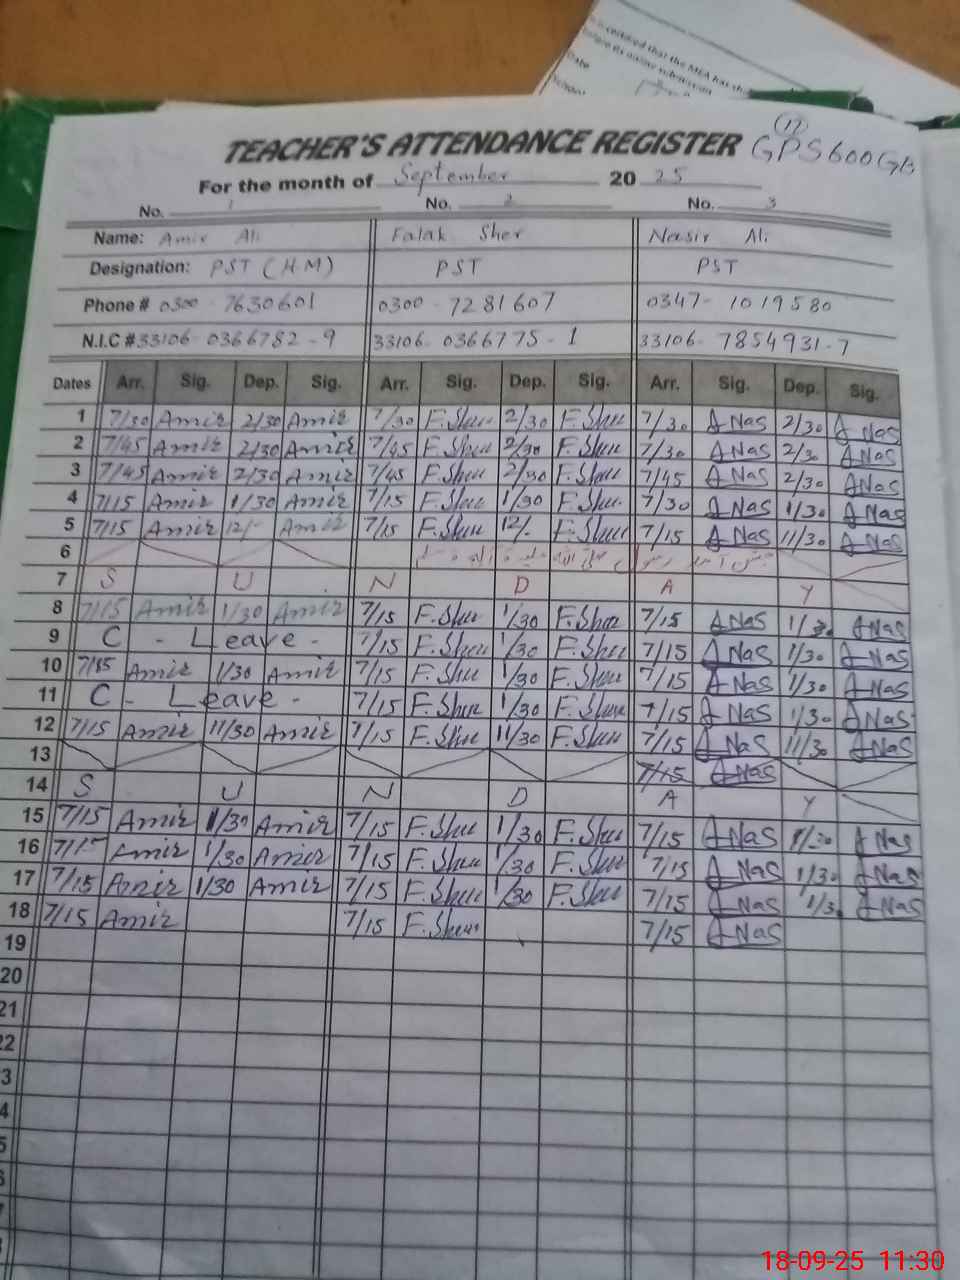 is certified that the MEA has
before its online submission
Date
School
(17)
TEACHER'S ATTENDANCE REGISTER GPS 600 GB
For the month of September 20 25
No. 1 No. 2 No. 3
Name: Amir Ali Falak Sher Nasir Ali
Designation: PST (H-M) PST PST
Phone # 0300 - 7630601 0300 - 7281607 0347- 1019580
N.I.C # 33106- 0366782 - 9 33106- 0366775 - 1 33106- 7854931-7
Dates Arr. Sig. Dep. Sig. Arr. Sig. Dep. Sig. Arr. Sig. Dep. Sig.
1 7/30 Amir 2/30 Amir 7/30 F.Sher 2/30 F.Sher 7/30 A Nas 2/30 A Nas
2 7/45 Amir 2/30 Amir 7/45 F.Sher 2/30 F.Sher 7/30 A Nas 2/30 A Nas
3 7/45 Amir 2/30 Amir 7/45 F.Sher 2/30 F.Sher 7/45 A Nas 2/30 A Nas
4 7/15 Amir 1/30 Amir 7/15 F.Sher 1/30 F.Sher 7/30 A Nas 1/30 A Nas
5 7/15 Amir 12/- Amir 7/15 F.Sher 12/- F.Sher 7/15 A Nas 11/30 A Nas
6
7 S U N D A Y
8 7/15 Amir 1/30 Amir 7/15 F.Sher 1/30 F.Sher 7/15 A Nas 1/30 A Nas
9 C - Leave - 7/15 F.Sher 1/30 F.Sher 7/15 A Nas 1/30 A Nas
10 7/15 Amir 1/30 Amir 7/15 F.Sher 1/30 F.Sher 7/15 A Nas 1/30 A Nas
11 C - Leave - 7/15 F.Sher 1/30 F.Sher 7/15 A Nas 1/30 A Nas
12 7/15 Amir 11/30 Amir 7/15 F.Sher 11/30 F.Sher 7/15 A Nas 11/30 A Nas
13 7/15 A Nas
14 S U N D A Y
15 7/15 Amir 1/30 Amir 7/15 F.Sher 1/30 F.Sher 7/15 A Nas 1/30 A Nas
16 7/15 Amir 1/30 Amir 7/15 F.Sher 1/30 F.Sher 7/15 A Nas 1/30 A Nas
17 7/15 Amir 1/30 Amir 7/15 F.Sher 1/30 F.Sher 7/15 A Nas 1/30 A Nas
18 7/15 Amir 7/15 F.Sher 7/15 A Nas
19
20
21
22
3
4
5
18-09-25 11:30